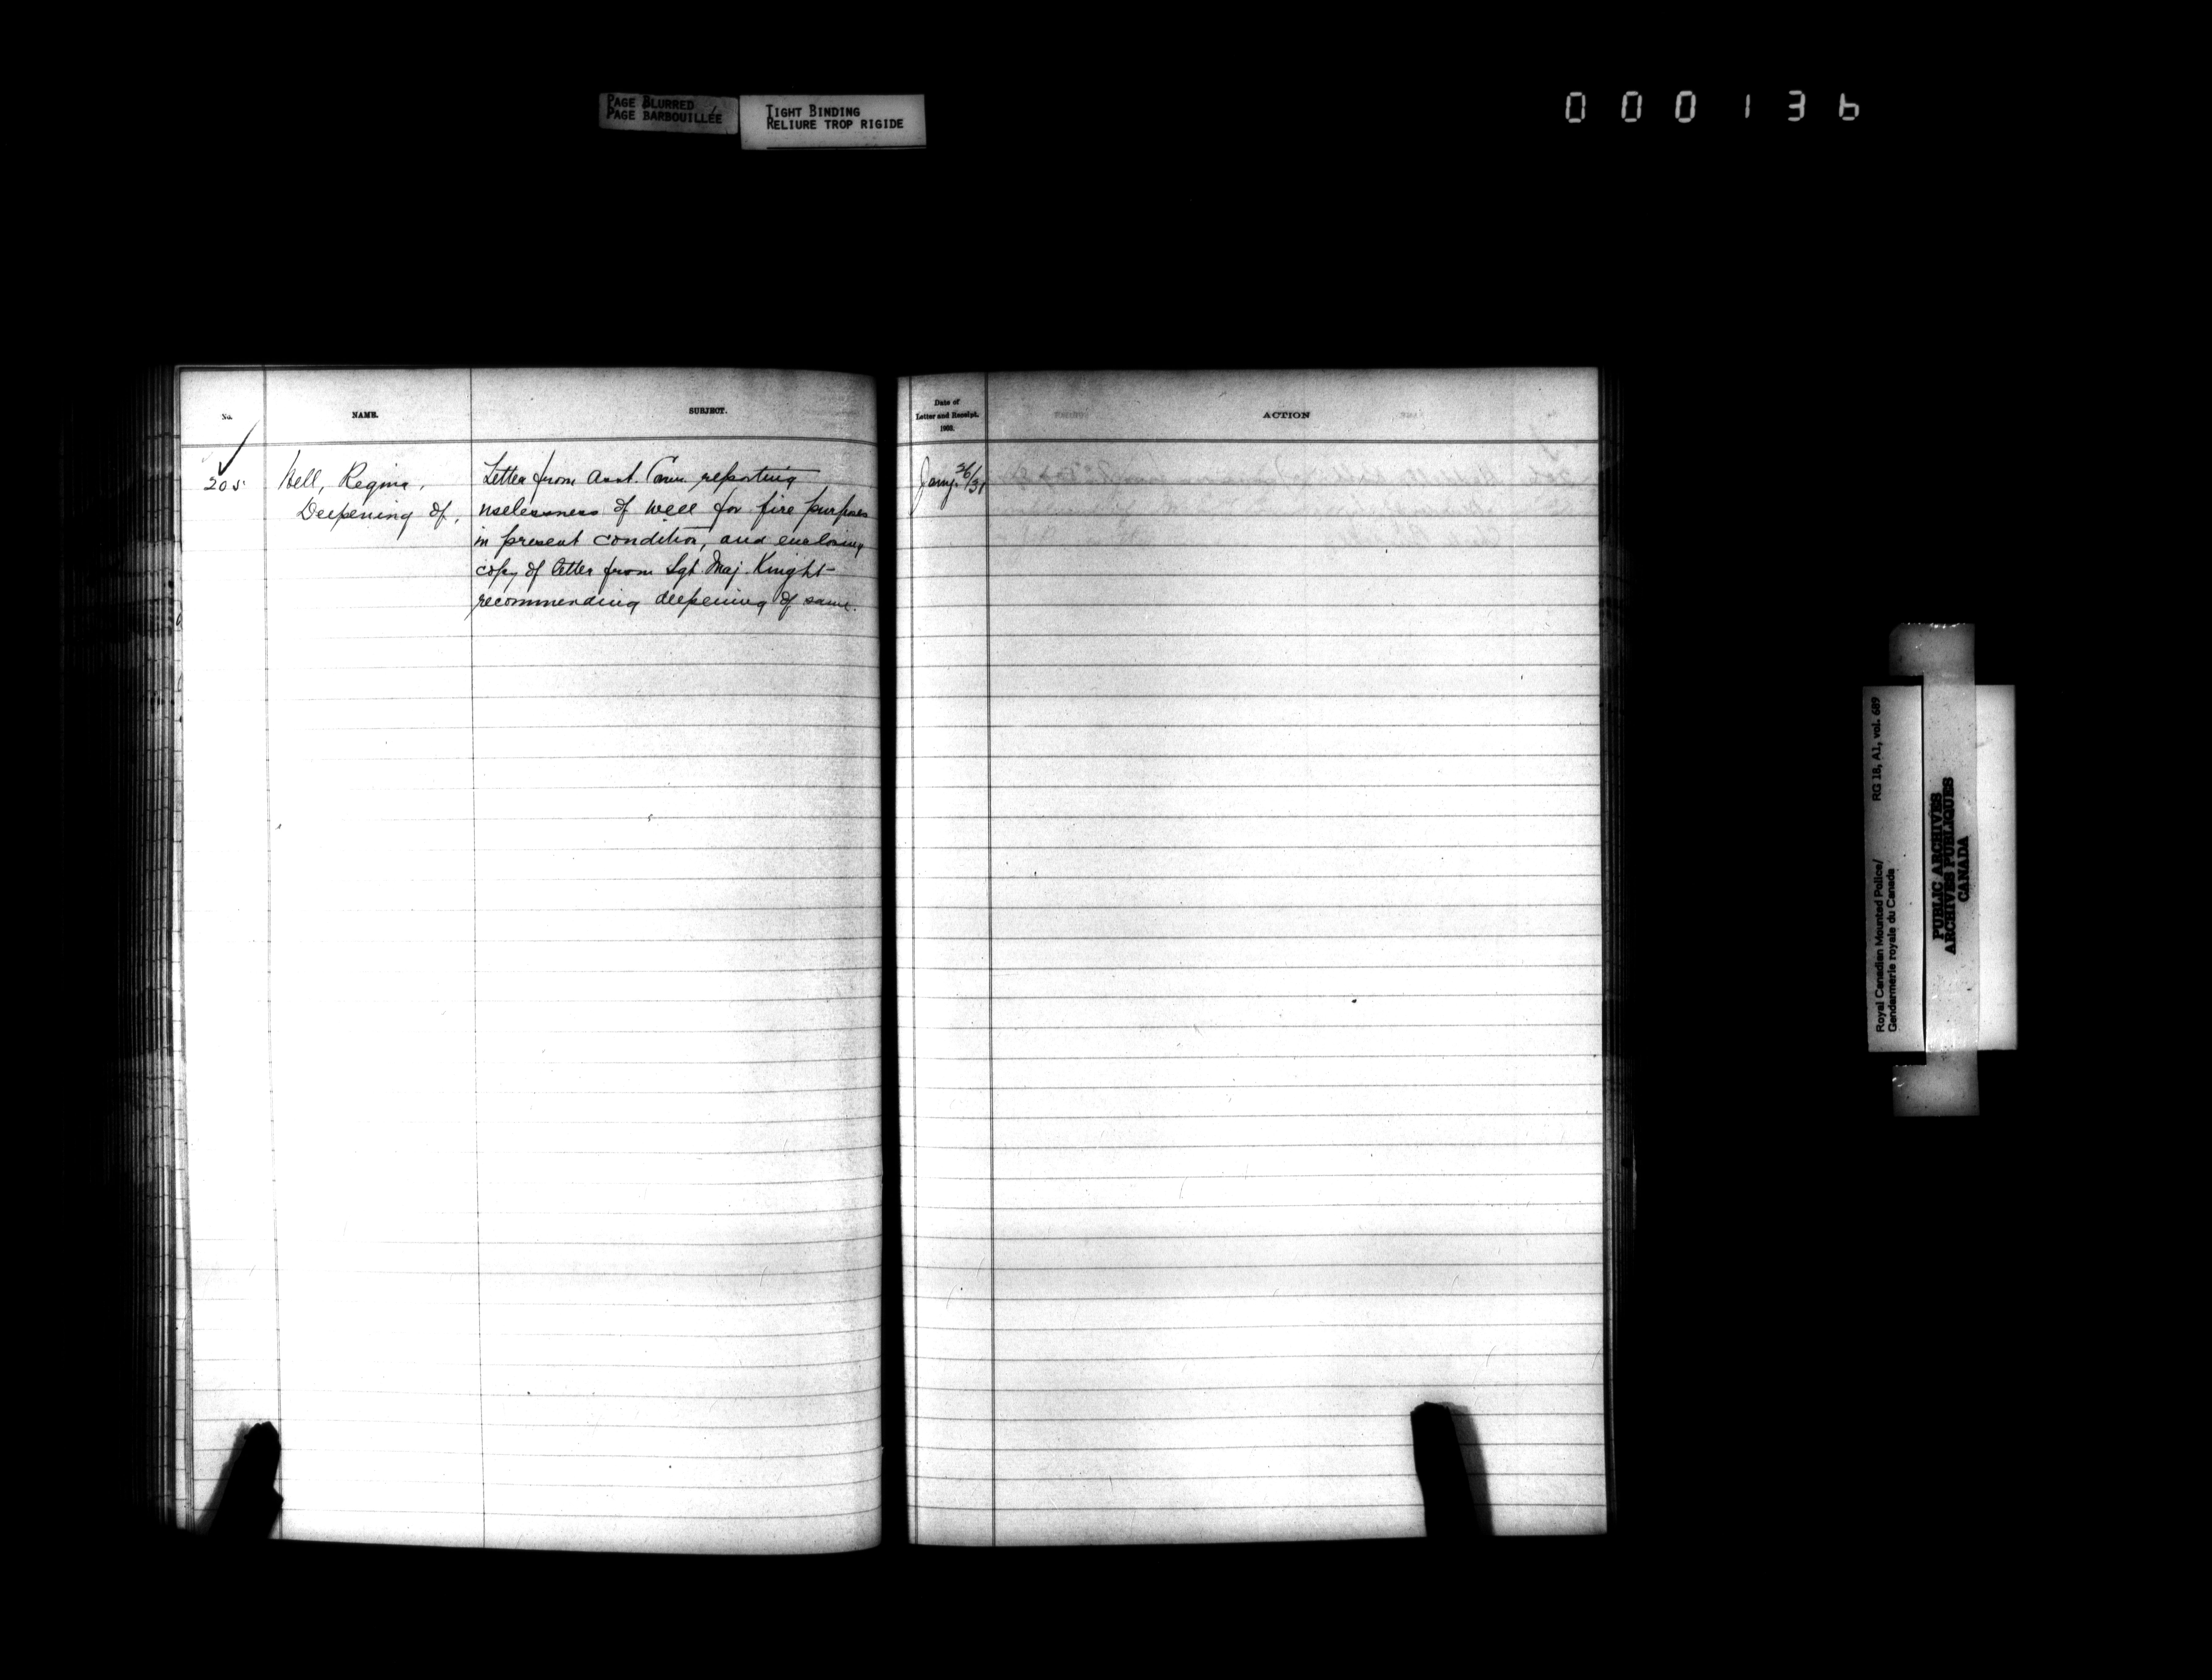 PAGE BLURRED
PAGE BARBOUILLÉE
TIGHT BINDING
RELIURE TROP RIGIDE
000136
No.
NAME.
SUBJECT.
Date of
Letter and Receipt.
1903.
ACTION
205
Well, Regina,
Deepening of,
Letter from Asst. Comr. reporting
uselessness of well for fire purposes
in present condition, and enclosing
copy of letter from Sgt. Maj. Knight
recommending deepening of same.
Jany. 26/31
Royal Canadian Mounted Police/
Gendarmerie royale du Canada
RG 18, A1, vol. 689
PUBLIC ARCHIVES
ARCHIVES PUBLIQUES
CANADA